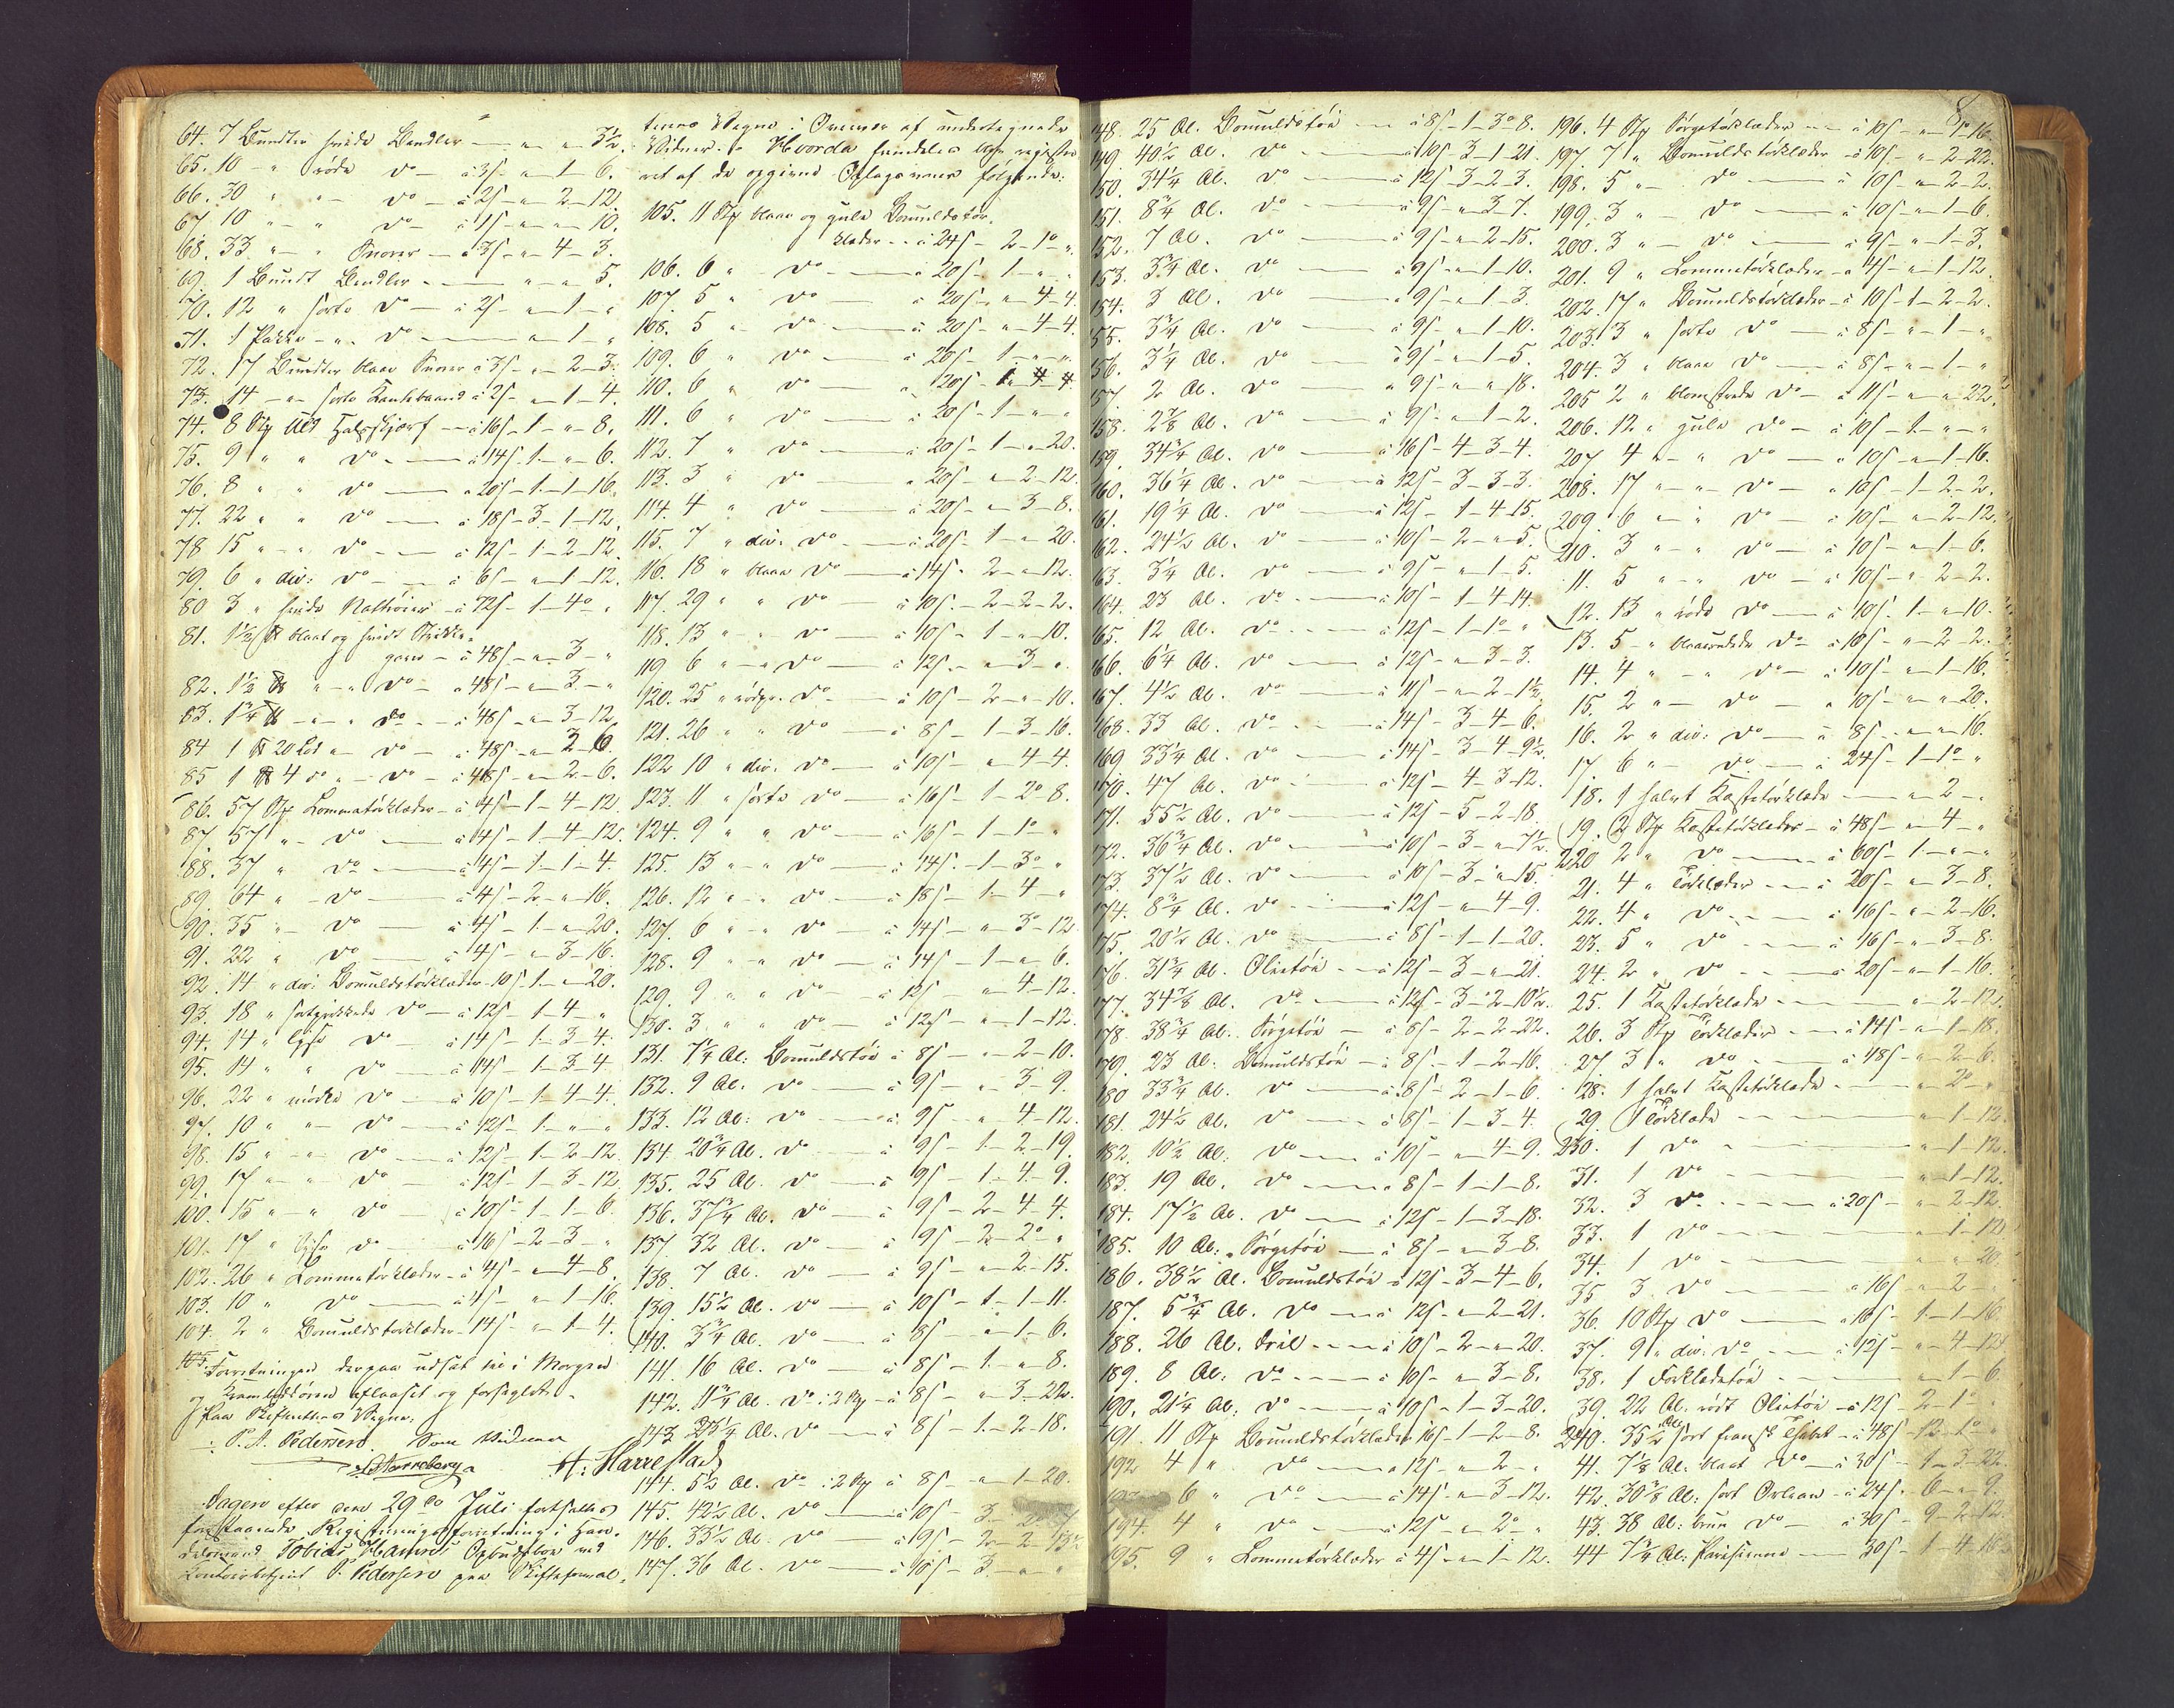 64. 7 Bundter hvide Bendler — " — " — 3½.
65. 10 — " røde Do — à 3s — " — 1 — 6.
66. 30 " " — Do — à 2s — " — 2 — 12.
67. 10 " — " Do — à 1s — " — " — 10.
68. 33 " — " Snorer — à 3s — " — 4 — 3.
69. 1 Bundt Bendler — " — " — 5.
70. 12 " sorte Do — à 2s — " — 1 — "
71. 1 Pakke — " — Do — " — 1 — "
72. 17 Bundter blaae Snorer à 3s — " — 2 — 3.
73. 14 — " — sorte Kantebaand à 2s — " — 1 — 4.
74. 8 Stk Uld Halsskjærf — à 16s — 1 — " — 8.
75. 9 " " Do — à 14s — 1 — " — 6.
76. 8 " " Do — à 20s — 1 — 1 — 16.
77. 22 " " Do — à 18s — 3 — 1 — 12.
78 15 " — " Do — à 12s — 1 — 2 — 12.
79. 6 " div: Do — à 6s — " — 1 — 12.
80 3 " hvide Nathuer — à 72s — 1 — 4 — "
81. 1½ ℔ blaat og hvidt Strikke-
garn — à 48s — " — 3 — "
82. 1½ ℔ " — " Do — à 48s — " — 3 — "
83. 1¾ ℔ — " — " Do — à 48s — " — 3 — 12.
84 1 ℔ 20 Lod " — Do — à 48s — " — 3 — 6.
85 1 ℔ 4 Do " — Do — à 48s — " — 2 — 6.
86. 57 Stk Lommetørklæder — à 4s — 1 — 4 — 12.
87. 57 " — Do — à 4s — 1 — 4 — 12.
88. 37 " Do — à 4s — 1 — 1 — 4.
89. 64 " — Do — à 4s — 2 — " — 16.
90. 35 " — Do — à 4s — 1 — " — 20.
91. 22 " Do — à 4s — " — 3 — 16.
92. 14 " div: Bomuldstørklæder 10s — 1 — " — 20.
93. 18 " sortprikkede Do — à 12s — 1 — 4 — "
94. 14 " lyse Do — à 14s — 1 — 3 — 4.
95. 14 " " Do — à 14s — 1 — 3 — 4.
96. 22 " mørke Do — à 10s — 1 — 4 — 4.
97. 10 " " — Do — à 12s — 1 — " — "
98. 15 " — " Do — à 12s — 1 — 2 — 12.
99. 17 " — " Do — à 12s — 1 — 3 — 12.
100. 15 " — " Do — à 10s — 1 — 1 — 6.
101. 17 " lyse Do — à 16s — 2 — 3 — "
102. 26 " Lommetørklæder — à 4s — " — 4 — 8.
103. 10 " Do — à 4s — " — 1 — 16.
104. 2 " Bomuldstørklæder — 14s — " — 1 — 4.
Forretningen derpaa udsat til i Morgen
og Krambuddøren aflaaset og forseglet.
Paa Skifterettens Vegne:
P. A. Pedersen. Som Vidner
H: Harrestad
Dagen efter den 29de Juli fortsattes
foranstaaende Registreringsforretning i Han-
delsmand Tobias Hansens Opbudsbo ved
Kontoirbetjent P. Pedersen paa Skifteforval-
terens Vegne i Overvær af undertegnede
Vidner. — Hvorda fremdeles blev registre-
ret af de opgivne Oplagsvarer følgende:
105. 11 Stk blaae og gule Bomuldstør-
klæder — à 24s — 2 — 1 — "
106. 6 " Do — à 20s — 1 — " — "
107. 5 " Do — à 20s — " — 4 — 4.
108. 5 " Do — à 20s — " — 4 — 4.
109. 6 " Do — à 20s — 1 — " — "
110. 6 " Do — à 20s — 1
111. 6 " Do — à 20s — 1 — " — "
112. 7 " Do — à 20s — 1 — " — 20.
113. 3 " Do — à 20s — " — 2 — 12.
114. 4 " Do — à 20s — " — 3 — 8.
115. 7 " div. Do — à 20s — 1 — " — 20.
116. 18 " blaae Do — à 14s — 2 — " — 12.
117. 29 " " Do — à 10s — 2 — 2 — 2.
118. 13 " " Do — à 10s — 1 — " — 10.
119. 6 " — " Do — à 12s — " — 3 — "
120. 25 " rødpr. Do — à 10s — 2 — " — 10.
121. 26 " " Do — à 8s — 1 — 3 — 16.
122. 10 " div. Do — à 10s — " — 4 — 4.
123. 11 " sorte Do — à 16s — 1 — 2 — 8.
124. 9 " " Do — à 16s — 1 — 1 — "
125. 13 " — " Do — à 14s — 1 — 3 — "
126. 12 " — " Do — à 18s — 1 — 4 — "
127. 6 " — " Do — à 14s — " — 3 — 12.
128. 9 " — " Do — à 14s — 1 — " — 6.
129. 9 " " Do — à 12s — " — 4 — 12.
130. 3 " " Do — à 12s — " — 1 — 12.
131. 7¼ Al: Bomuldstøi à 8s — " — 2 — 10.
132. 9 Al. Do — à 9s — " — 3 — 9.
133. 12 Al: Do — à 9s — " — 4 — 12.
134. 20¾ Al. Do — à 9s — 1 — 2 — 19.
135. 25 Al. Do — à 9s — 1 — 4 — 9.
136. 37¾ Al. Do — à 9s — 2 — 4 — 4.
137. 32 Al. Do — à 9s — 2 — 2 — "
138. 7 Al. Do — à 9s — " — 2 — 15.
139. 15½ Al. Do — à 10s — 1 — 1 — 11.
140. 3¾ Al. Do — à 8s — " — 1 — 6.
141. 16 Al. Do — à 8s — 1 — " — 8.
142. 11¾ Al. Do i 2 Stk — à 8s — " — 3 — 22.
143. 23¼ Al. Do — à 8s — 1 — 2 — 18.
144. 5½ Al. Do i 2 Stk à 8s — " — 1 — 20.
145. 42½ Al. Do — à 10s — 3
146. 33½ Al. Do — à 9s — 2 — 2 — 13½
147. 36 Al. Do — à 10s — 3 — " — "
148. 25 Al. Bomuldstøi — à 8s — 1 — 3 — 8.
149. 40½ Al. Do — à 10s — 3 — 1 — 21.
150. 34¼ Al. Do — à 12s — 3 — 2 — 3.
151. 8¾ Al. Do — à 9s — " — 3 — 7.
152. 7 Al. Do — à 9s — " — 2 — 15.
153. 3¾ Al. Do — à 9s — " — 1 — 10.
154. 3 Al. Do — à 9s — " — 1 — 3.
155. 3¾ Al. Do — à 9s — " — 1 — 10.
156. 3¼ Al. Do — à 9s — " — 1 — 5.
157. 2 Al. Do — à 9s — " — " — 18.
158. 2⅞ Al. Do — à 9s — " — 1 — 2.
159. 34¾ Al. Do — à 16s — 4 — 3 — 4.
160. 36¼ Al. Do — à 12s — 3 — 3 — 3.
161. 19¼ Al. Do — à 12s — 1 — 4 — 15.
162. 24½ Al. Do — à 10s — 2 — " — 5.
163. 3¼ Al. Do — à 9s — " — 1 — 5.
164. 23 Al. Do — à 10s — 1 — 4 — 14.
165. 12 Al. Do — à 12s — 1 — 1 — "
166. 6¼ Al. Do — à 12s — " — 3 — 3.
167. 4½ Al. Do — à 11s — " — 2 — 1½.
168. 33 Al. Do — à 14s — 3 — 4 — 6.
169. 33¼ Al. Do — à 14s — 3 — 4 — 9½.
170. 47 Al. Do — à 12s — 4 — 3 — 12.
171. 55½ Al. Do — à 12s — 5 — 2 — 18.
172. 36¾ Al. Do — à 10s — 3 — " — 7½.
173. 37½ Al. Do — à 10s — 3 — " — 15.
174. 8¾ Al. Do — à 12s — " — 4 — 9.
175. 20½ Al. Do — à 8s — 1 — 1 — 20.
176. 31¾ Al. Olietøi — à 12s — 3 — " — 21.
177. 34⅞ Al. Do — à 12s — 3 — 2 — 10½.
178. 38¾ Al. Sørgetøi — à 8s — 2 — 2 — 22.
179. 23 Al. Bomuldstøi — à 8s — 1 — 2 — 16.
180 33¾ Al. Do — à 8s — 2 — 1 — 6.
181. 24½ Al. Do — à 8s — 1 — 3 — 4.
182. 10½ Al: Do — à 10s — " — 4 — 9.
183. 19 Al. Do — à 8s — 1 — 1 — 8.
184. 17½ Al. Do — à 12s — 1 — 3 — 18.
185. 10 Al: Sørgetøi — à 8s — " — 3 — 8.
186. 38½ Al. Bomuldstøi à 12s — 3 — 4 — 6.
187. 5¾ Al. Do — à 12s — " — 2 — 21.
188. 26 Al. Dreil — à 10s — 2 — " — 20.
189. 8 Al: Do — à 10s — " — 3 — 8.
190. 21¼ Al: Do — à 10s — 1 — 3 — 20.
191. 11 Stk Bomuldstørklæder 16s — 1 — 2 — 8.
192 4 " Do — à 12s — " — 2 — "
6 " Do — à 14s — " — 3 — 12.
194. 4 " Do — à 12s — " — 2 — "
195. 9 " Lommetørklæder à 4s — " — 1 — 12.
8
196. 4 Stk Sørgetørklæder — à 10s — " — 1 — 16.
197. 7 " Bomuldstørklæder — à 10s — " — 2 — 22.
198. 5 " — Do — à 10s — " — 2 — 2.
199. 3 " — Do — à 10s — " — 1 — 6.
200. 3 " — Do — à 9s — " — 1 — 3.
201. 9 " Lommetørklæder — à 4s — " — 1 — 12.
202. 17 " Bomuldstørklæder — à 10s — 1 — 2 — 2.
203. 3 " sorte Do — à 8s — " — 1 — "
204. 3 " blaae Do — à 8s — " — 1 — "
205 2 " blomstrede Do — à 11s — " — " — 22.
206. 12 " gule Do — à 10s — 1 — " — "
207 4 " — " Do — à 10s — " — 1 — 16.
208. 17 " — " — Do — à 10s — 1 — 2 — 2.
209. 6 " — " Do — à 10s — " — 2 — 12.
210. 3 " — " Do — à 10s — " — 1 — 6.
11. 5 " — " Do — à 10s — " — 2 — 2.
12. 13 " røde Do — à 10s — 1 — " — 10.
13. 5 " blaarudede Do — à 10s — " — 2 — 2.
14. 4 " — " Do — à 10s — " — 1 — 16.
15. 2 " — Do — à 10s — " — " — 20.
16. 2 " div: Do — à 8s — " — " — 16.
17 6 " — Do — à 24s — 1 — 1 — "
18. 1 halvt Kastetørklæde — " — 2 — "
19. 2 Stk Kastetørklæder — à 48s — " — 4 — "
220 2 " Do — à 60s — 1 — " — "
21. 4 " Tørklæder — à 20s — " — 3 — 8.
22. 4 " Do — à 16s — " — 2 — 16.
23. 5 " Do — à 16s — " — 3 — 8.
24. 2 " Do — à 20s — " — 1 — 16.
25. 1 Kastetørklæde — " — 2 — 12.
26. 3 Stk Tørklæder — à 14s — " — 1 — 18.
27. 3 " Do — à 18s — " — 2 — 6.
28. 1 halvt Kastetørklæde — " — 2 — "
29. 1 Tørklæde — " — 1 — 12.
230. 1 Do — " — 1 — 12.
31. 1 Do — " — 1 — 12.
32. 3 Do — à 20s — " — 2 — 12.
33. 1 Do — " — 1 — 12.
34. 1 Do — " — " — 20.
35 3 Do — à 16s — " — 2 — "
36. 10 Stk Do — à 16s — 1 — 1 — 16.
37. 9 " div: Do — à 12s — " — 4 — 12.
38. 1 Forklædetøi — " — 1 — 6.
39. 22 Al. rødt Olietøi — à 12s — 2 — 1 — "
240. 35½ Al. sort fransk Thibet — à 48s
41. 7⅞ Al. blaat Do — à 30s — 1 — 3 — 22.
42. 30⅜ Al: sort Orlean — à 24s — 6 — " — 9.
43. 38 Al: brun Do — à 30s — 9 — 2 — 12.
44 7¾ Al: Parisienne — 30s — 1 — 4